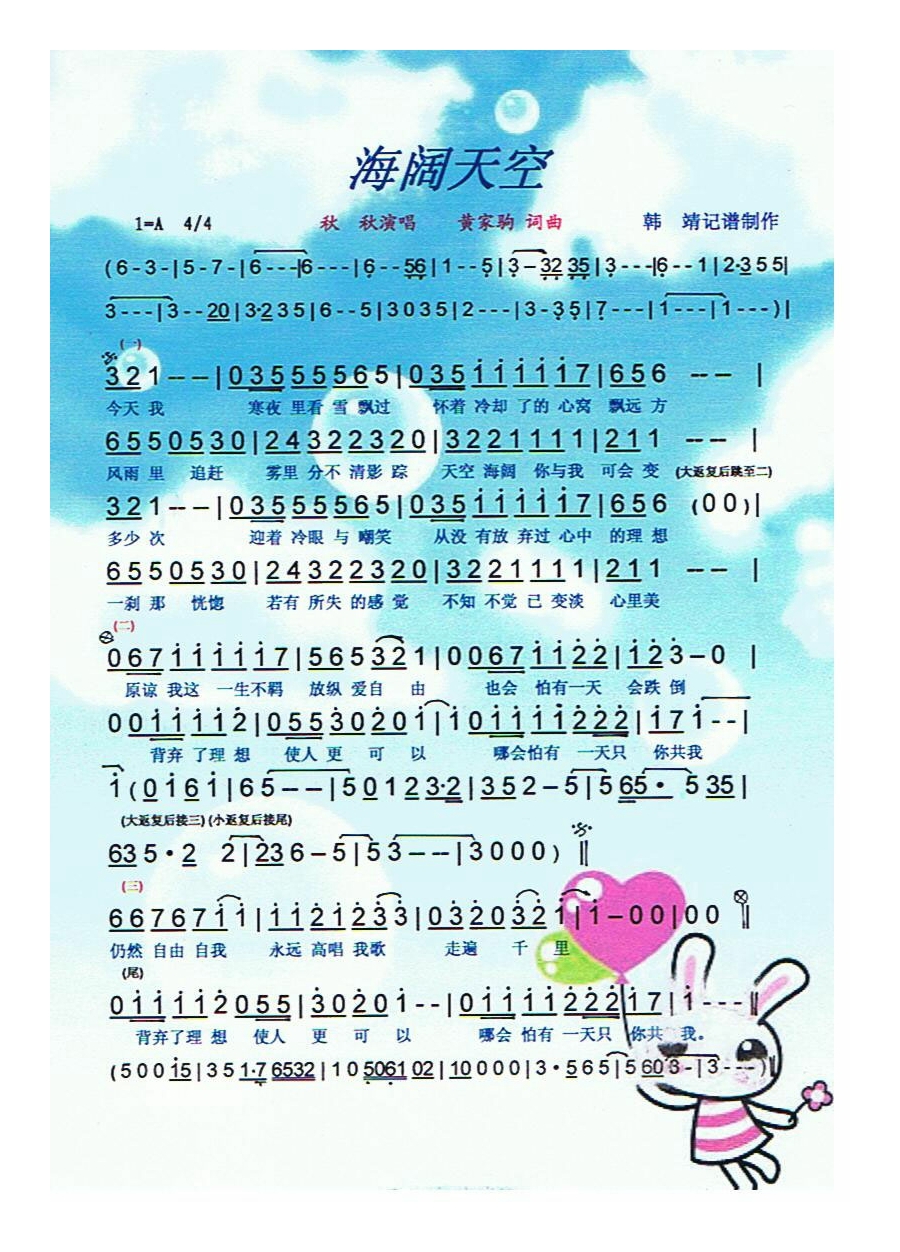 海阔天空
1=A 4/4 秋 秋演唱 黄家驹 词曲 韩 靖记谱制作
(6-3-|5-7-|6---|6---|6--56|1--5|3-32 35|3---|6--1|2·355|
3---|3--20|3·235|6--5|3035|2---|3-35|7---|1---|1---)|
(一)
321-- --|0355 5565|035i iii7|656 -- -- |
今天我 寒夜 里看 雪 飘过 怀着 冷却 了的 心窝 飘远 方
6550530|24322320|3221111|211 -- -- |
风雨 里 追赶 雾里 分不 清影 踪 天空 海阔 你与我 可会 变 (大返复后跳至二)
321-- --|03555565|035iiiii7|656 (00)|
多少 次 迎着 冷眼 与 嘲笑 从没 有放 弃过 心中 的理 想
6550530|24322320|3221111|211 -- -- |
一刹 那 恍惚 若有 所失 的感 觉 不知 不觉 已 变淡 心里美
(二)
067iiiii7|565321|0067ii22|i23-0 |
原谅 我这 一生不羁 放纵 爱自 由 也会 怕有一天 会跌 倒
00iiiii2|0553020i|i0iiii222|i7i--|
背弃 了理 想 使人 更 可 以 哪会怕有 一天只 你共我
i(0i6i|65-- --|50123·2|352-5|565· 535|
(大返复后接三)(小返复后接尾)
635·2 2|236-5|53-- --|3000)
(三)
66767ii|ii2i233|032032i|i-00|00
仍然 自由 自我 永远 高唱 我歌 走遍 千 里
(尾)
0iiiii2055|3020i--|0iiii222i7|i---
背弃了理 想 使人 更 可 以 哪会 怕有 一天只 你共 我。
(500i5|351·76532|105061 02|10000|3·565|5603-|3---)